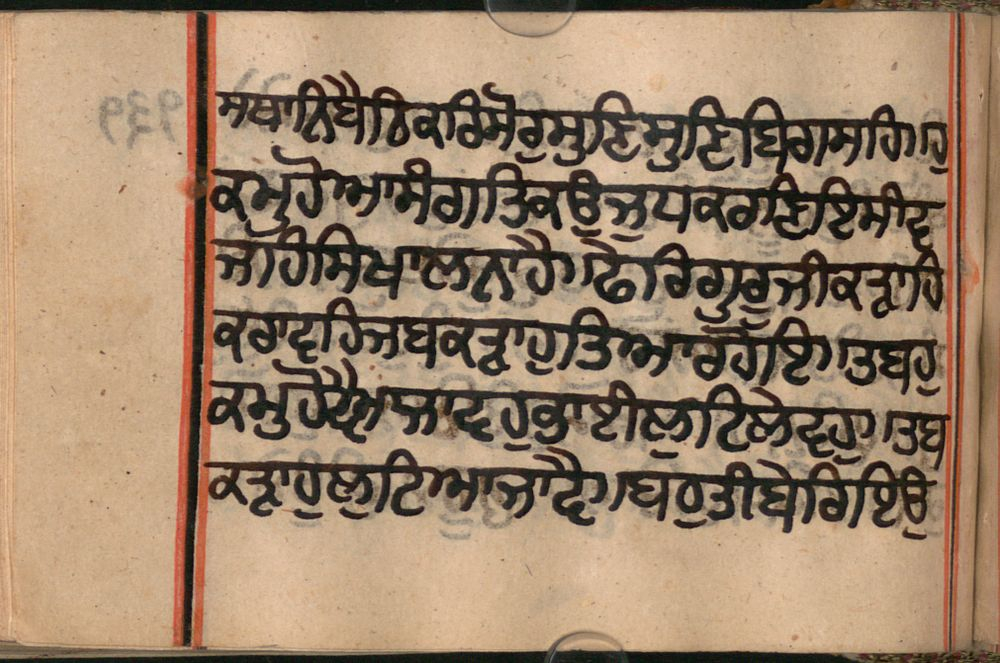 ਸਥਾਨਿ ਬੈਠਿ ਕਰਿ ਸੋਰੁ ਸੁਣਿ ਸੁਣਿ ਬਿਗਸਾਹਿ। ਹੁ
ਕਮੁ ਹੋਆ ਸੰਗਤਿ ਕਉ ਜੁਧ ਕਰਣਿ ਇਮੀਦ
ਜਾਹੀ ਸਿਖਾਲਨਾ ਹੈ। ਫੇਰਿ ਗੁਰੁ ਜੀ ਕੜਾਹਿ
ਕਰਾਵਹਿ ਜਬ ਕੜਾਹੁ ਤਿਆਰ ਹੋਇ। ਤਬ ਹੁ
ਕਮੁ ਹੋਵੈ ਆ ਜਾਵਹੁ ਭਾਈ ਲੁਟਿ ਲੇਵਹੁ। ਤਬ
ਕੜਾਹੁ ਲੁਟਿਆ ਜਾਵੈ। ਬਹੁਤੀ ਬੇਰਿ ਇਉ